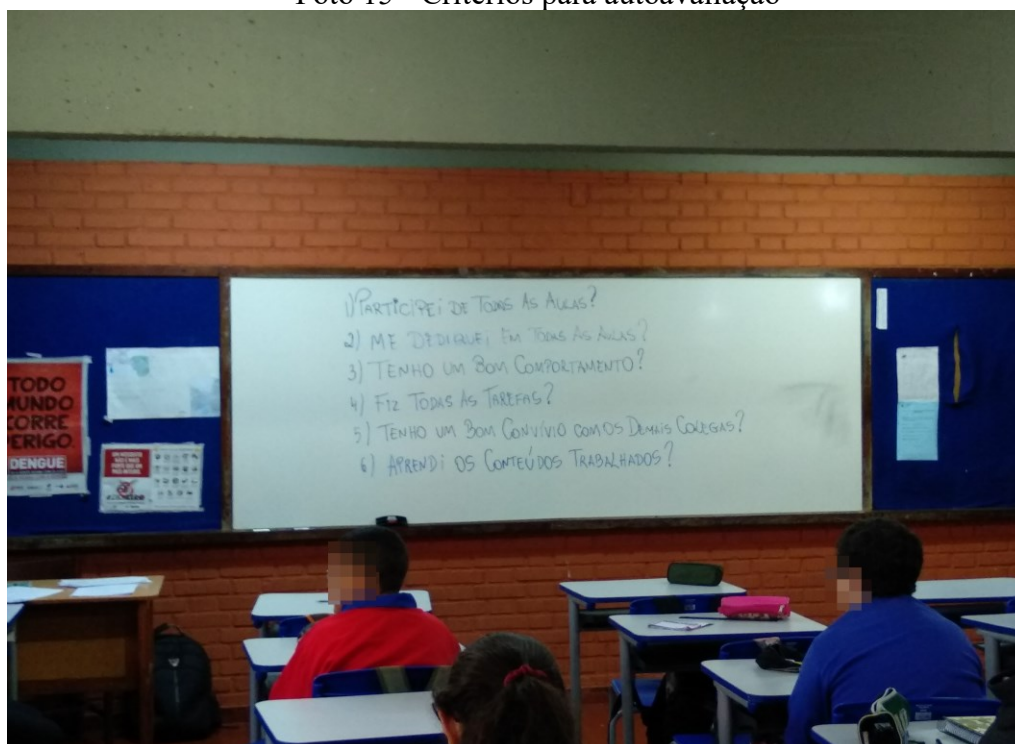 Foto 15 - Critérios para autoavaliação
1) PARTICIPEI DE TODAS AS AULAS?
2) ME DEDIQUEI EM TODAS AS AULAS?
3) TENHO UM BOM COMPORTAMENTO?
4) FIZ TODAS AS TAREFAS?
5) TENHO UM BOM CONVÍVIO COM OS DEMAIS COLEGAS?
6) APRENDI OS CONTEÚDOS TRABALHADOS?
TODO
MUNDO
CORRE
PERIGO
DENGUE
UM MOSQUITO